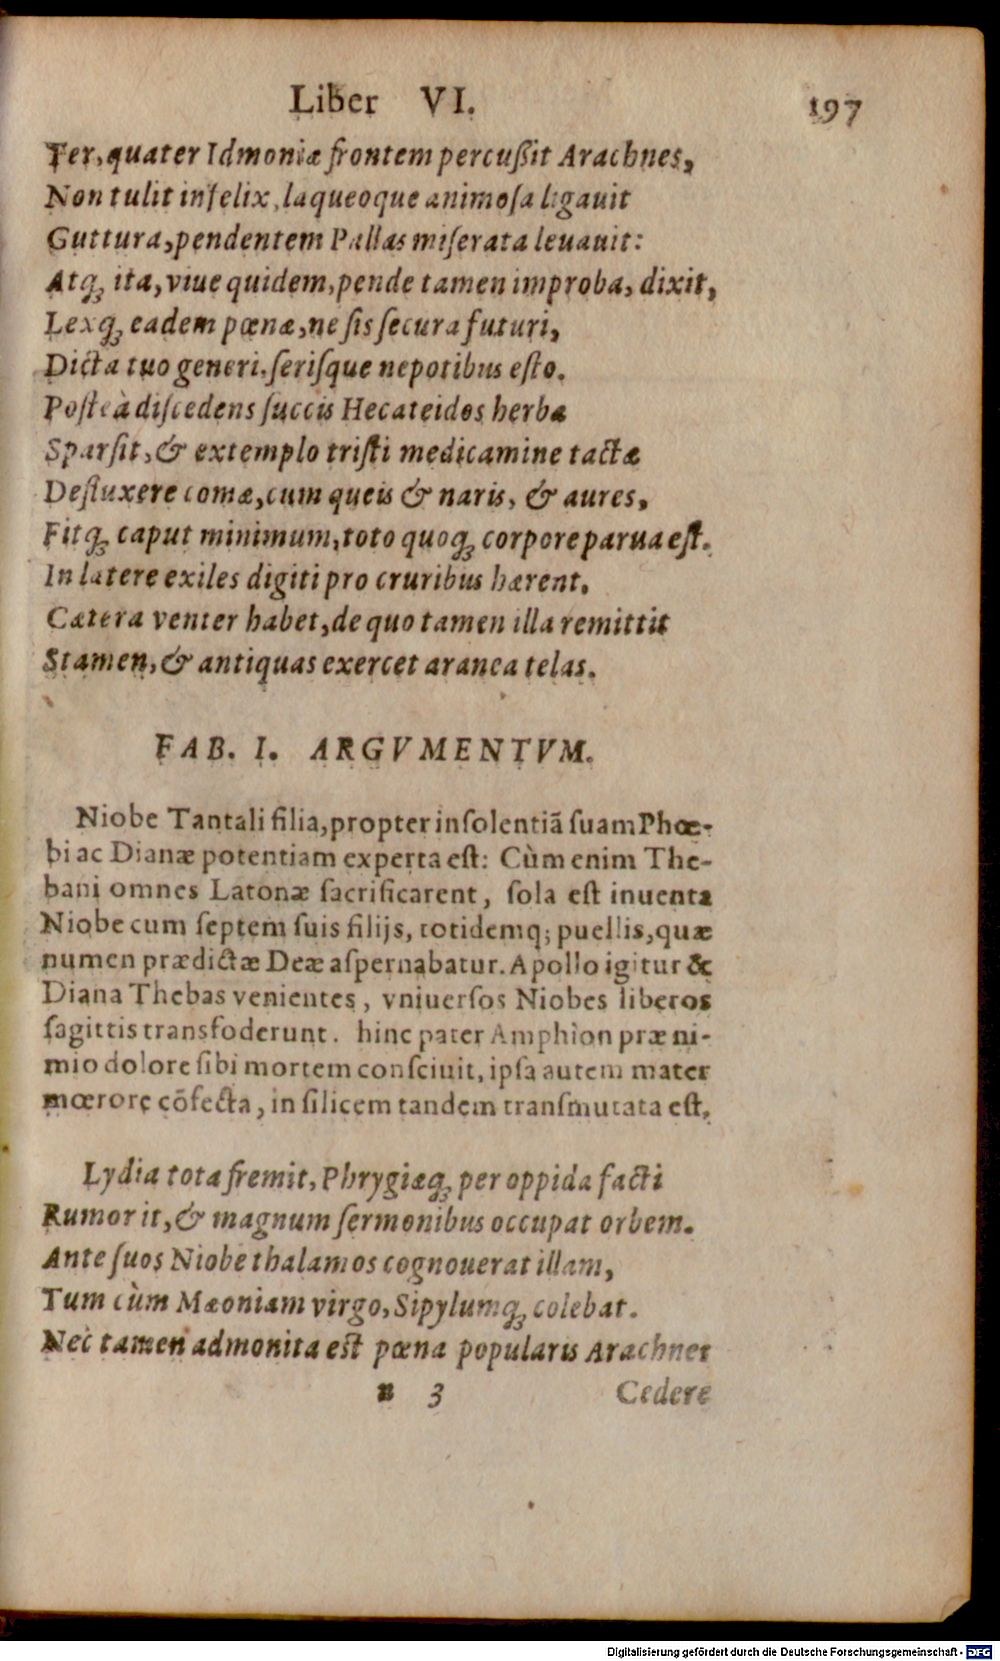 Liber VI. 197
Ter, quater Idmoniæ frontem percußit Arachnes,
Non tulit infelix, laqueoque animoſa ligauit
Guttura, pendentem Pallas miſerata leuauit:
Atq; ita, viue quidem, pende tamen improba, dixit,
Lexq; eadem pœnæ, ne ſis ſecura futuri,
Dicta tuo generi, ſeriſque nepotibus eſto.
Poſteà diſcedens ſuccis Hecateidos herbæ
Sparſit, & extemplo triſti medicamine tactæ
Defluxere comæ, cum queis & naris, & aures,
Fitq; caput minimum, toto quoq; corpore parua eſt.
In latere exiles digiti pro cruribus hærent,
Cætera venter habet, de quo tamen illa remittit
Stamen, & antiquas exercet aranea telas.
FAB. I. ARGVMENTVM.
Niobe Tantali filia, propter inſolentiã ſuam Phœ-
bi ac Dianæ potentiam experta eſt: Cùm enim The-
bani omnes Latonæ ſacrificarent, ſola eſt inuenta
Niobe cum ſeptem ſuis filijs, totidemq; puellis, quæ
numen prædictæ Deæ aſpernabatur. Apollo igitur &
Diana Thebas venientes, vniuerſos Niobes liberos
ſagittis transfoderunt. hinc pater Amphion præ ni-
mio dolore ſibi mortem conſciuit, ipſa autem mater
mœrore cõfecta, in ſilicem tandem tranſmutata eſt.
Lydia tota fremit, Phrygiæq; per oppida facti
Rumor it, & magnum ſermonibus occupat orbem.
Ante ſuos Niobe thalamos cognouerat illam,
Tum cùm Mæoniam virgo, Sipylumq; colebat.
Nec tamen admonita est pœna popularis Arachnes
n 3 Cedere
Digitalisierung gefördert durch die Deutsche Forschungsgemeinschaft - DFG